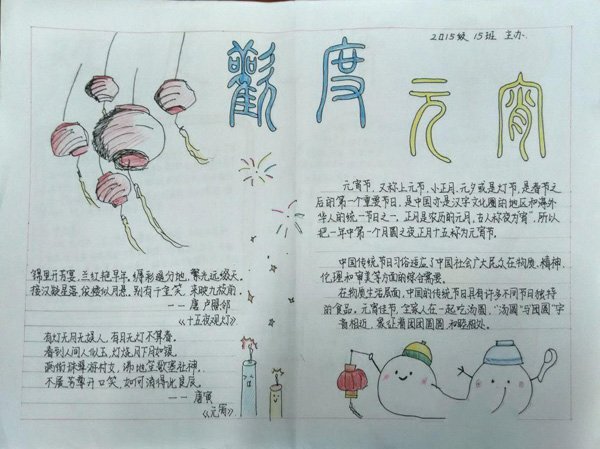 2015级 15班 主办
歡度元宵
元宵节，又称上元节、小正月、元夕或是灯节，是春节之
后的第一个重要节日，是中国亦是汉字文化圈的地区和海外
华人的统一节日之一。正月是农历的元月，古人称夜为宵，所以
把一年中第一个月圆之夜正月十五称为元宵节。
中国传统节日习俗适应了中国社会广大民众在物质、精神、
伦理和审美等方面的综合需要。
在物质生活层面，中国的传统节日具有许多不同节日独特
的食品。元宵佳节，全家人在一起吃汤圆，“汤圆”与“团圆”字
音相近，象征着团团圆圆和睦相处。
锦里开芳宴，兰红艳早年。缛彩遥分地，繁光远缀天。
接汉疑星落，依楼似月悬。别有千金笑，来映九枝前。
——唐 卢照邻
《十五夜观灯》
有灯无月无娱人，有月无灯不算春。
春到人间人似玉，灯烧月下月如银。
满街珠翠游村女，沸地笙歌赛社神。
不展芳尊开口笑，如何消得此良辰。
——唐寅
《元宵》